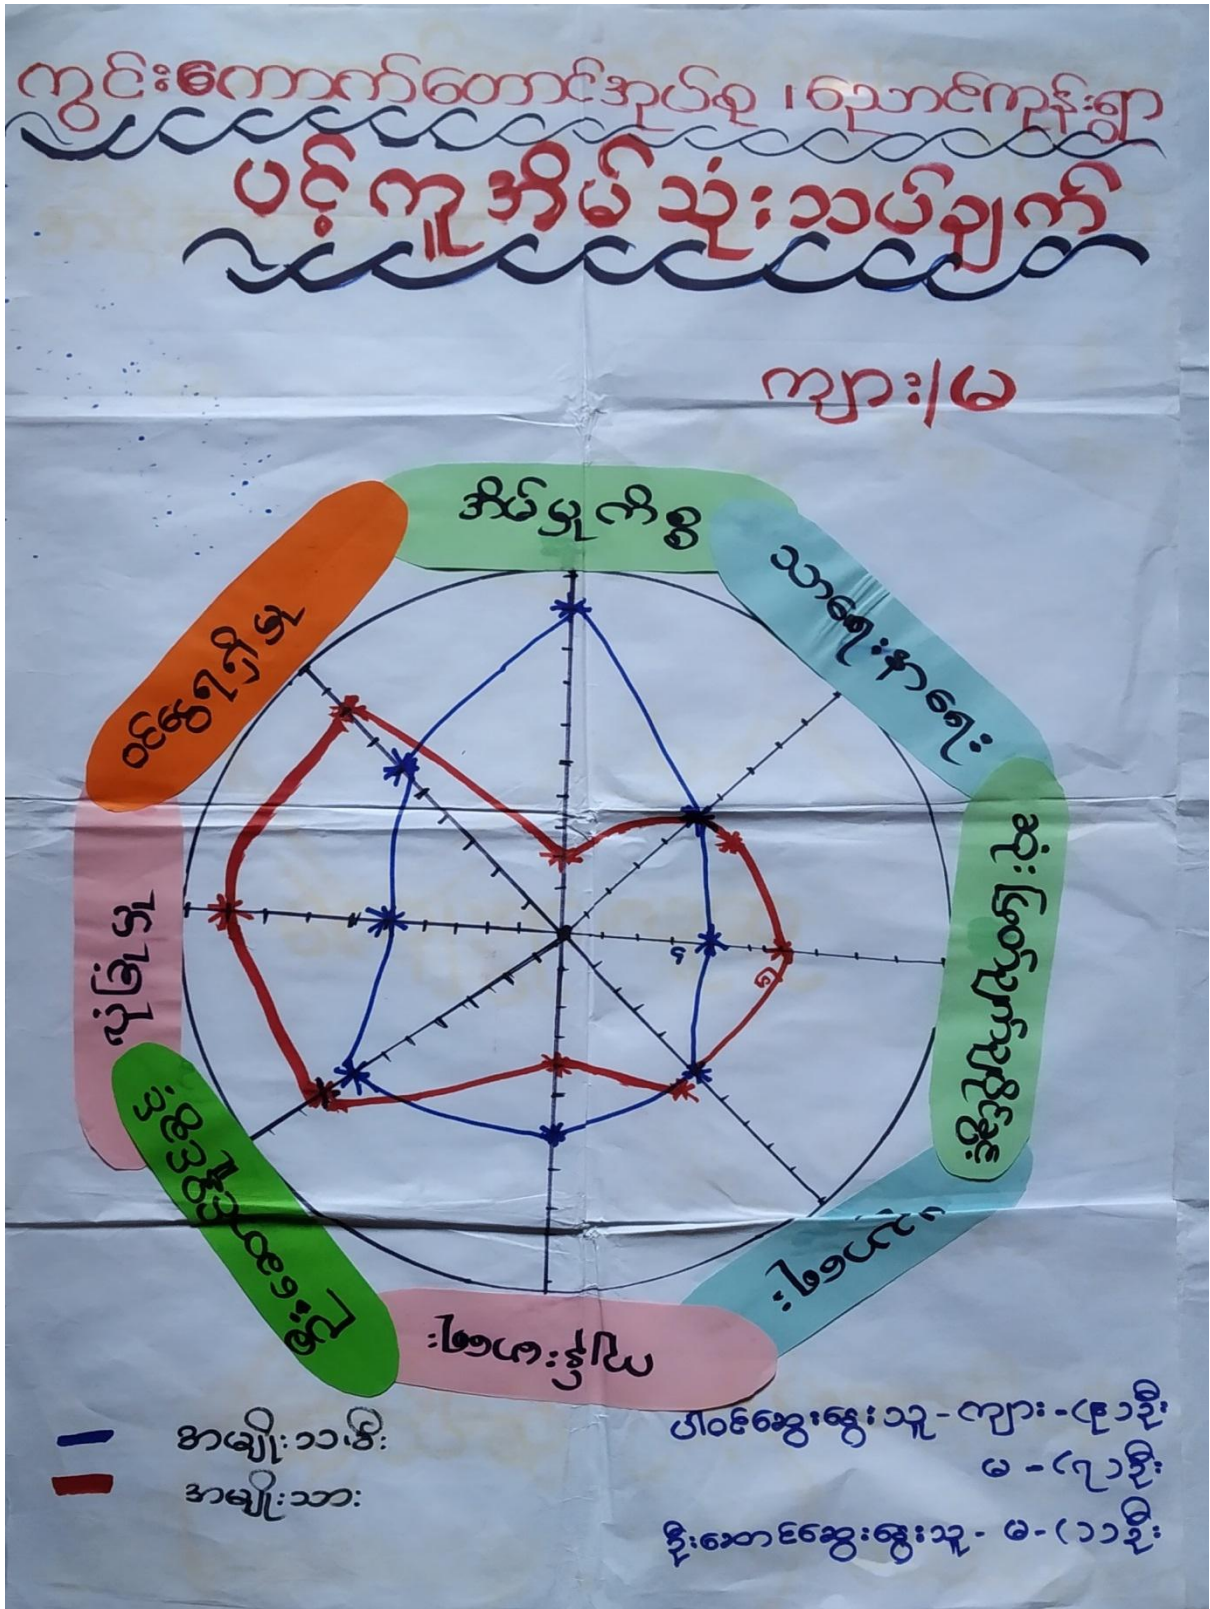 ကွင်းကောက်တောင်အုပ်စု ၊ ညောင်ကုန်းရွာ
ပင့်ကူအိမ်သုံးသပ်ချက်
ကျား/မ
အိမ်မှုကိစ္စ
သာရေးနာရေး
ဆုံးဖြတ်ချက်ချပိုင်ခွင့်
ကျန်းမာရေး
ပညာရေး
လုံခြုံမှု
ဝင်ငွေရရှိမှု
၄
၅
အမျိုးသမီး
အမျိုးသား
ပါဝင်ဆွေးနွေးသူ - ကျား - (၉) ဦး
မ - (၇) ဦး
ဦးဆောင်ဆွေးနွေးသူ - မ - (၁) ဦး